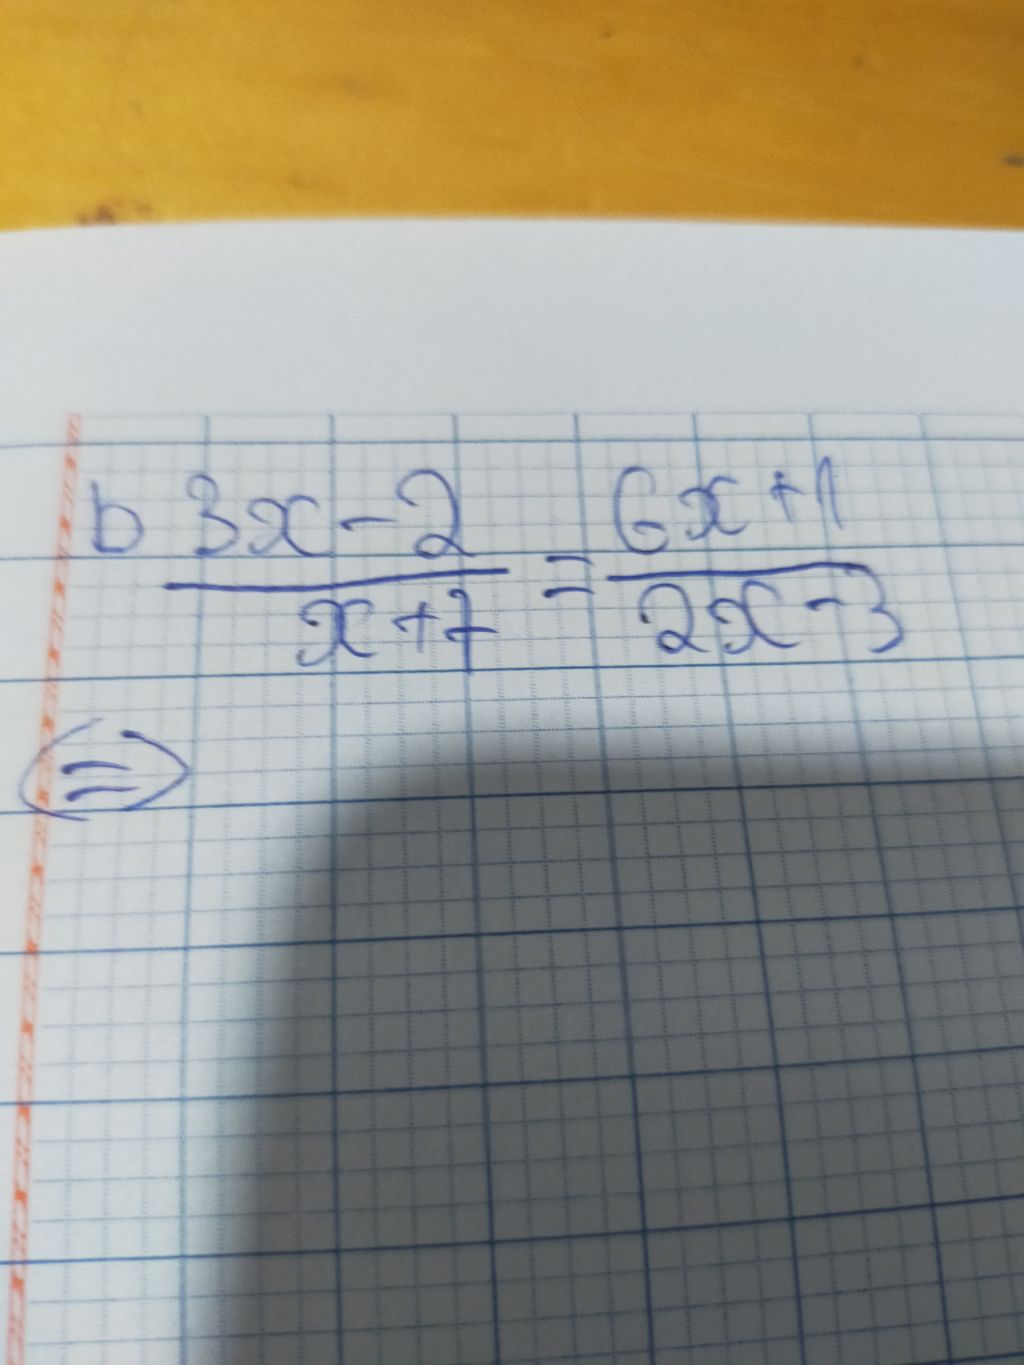 b 3x - 2 / x + 7 = 6x + 1 / 2x - 3
(=)